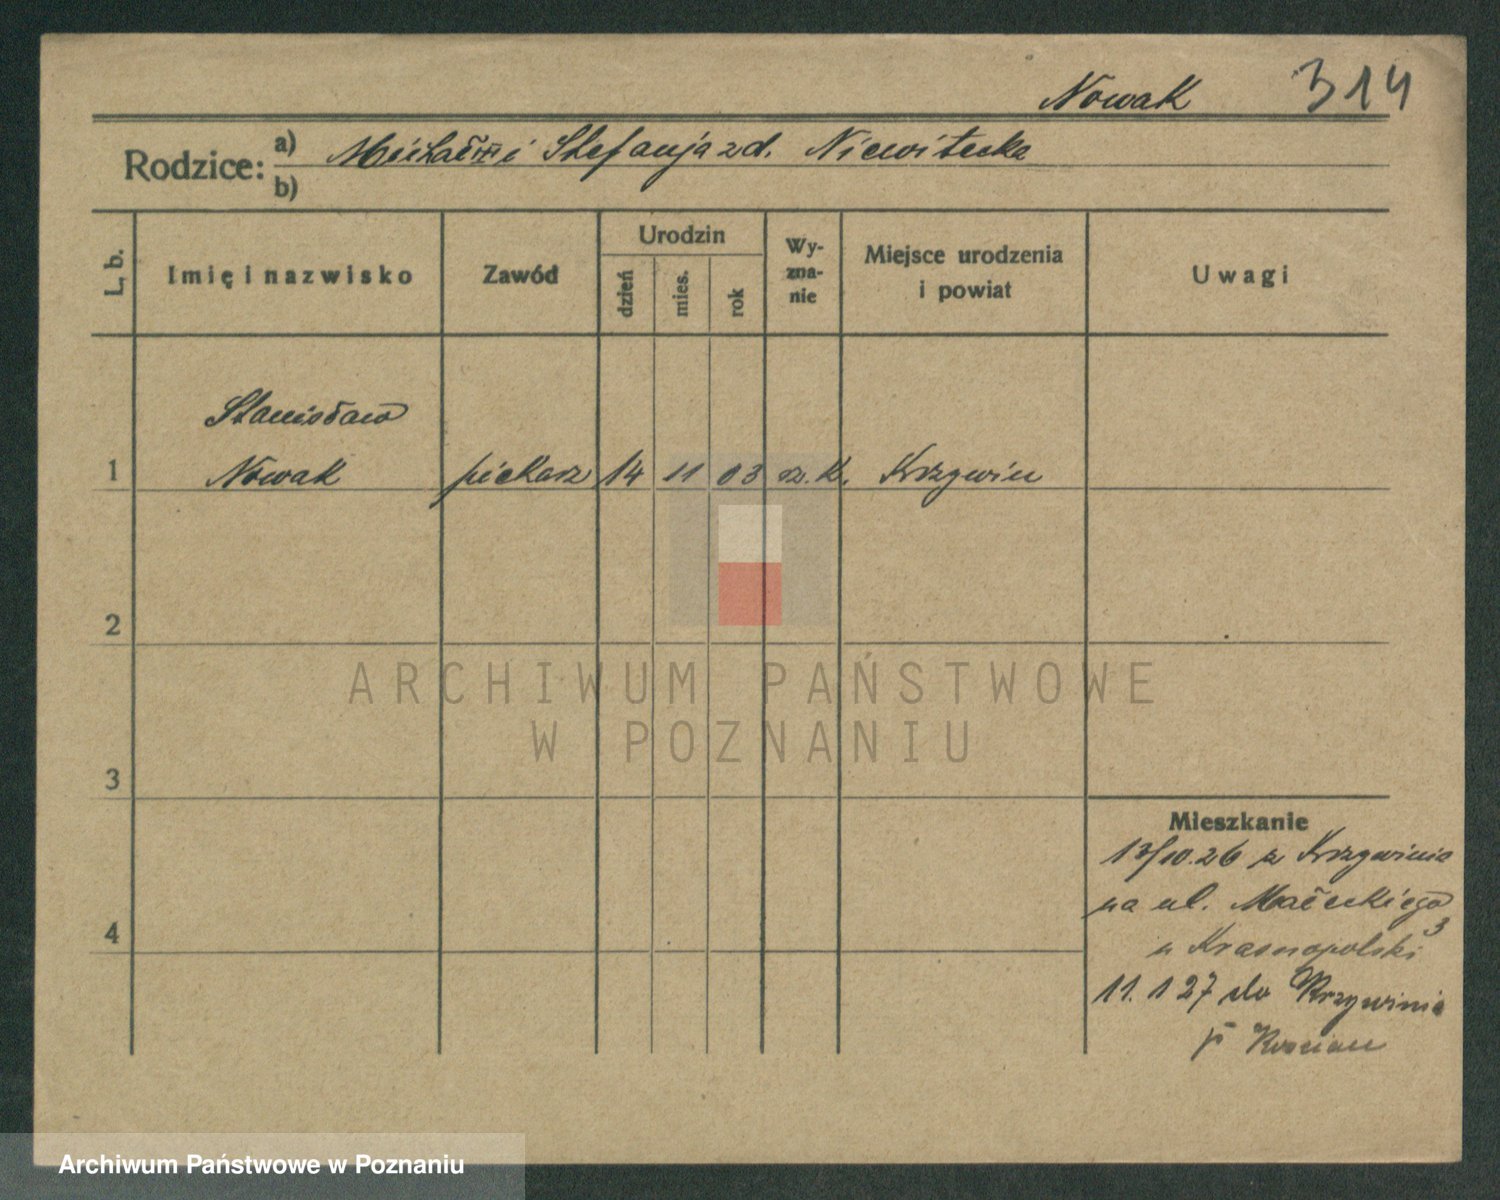 Nowak 314
Rodzice: a) Michał i Stefanja zd. Niewitecka
b)
L, b. Imię i nazwisko Zawód Urodzin dzień mies. rok Wy-zna-nie Miejsce urodzenia i powiat Uwagi
Stanisław
1 Nowak piekarz 14 11 03 rz. k. Krzywiń
2
ARCHIWUM PAŃSTWOWE
W POZNANIU
3
Mieszkanie
13/10.26 z Krzywinia
na ul. Małeckiego
3
4
u Krasnopolski
11. 1 27 do Krzywinia
p Kościan
Archiwum Państwowe w Poznaniu